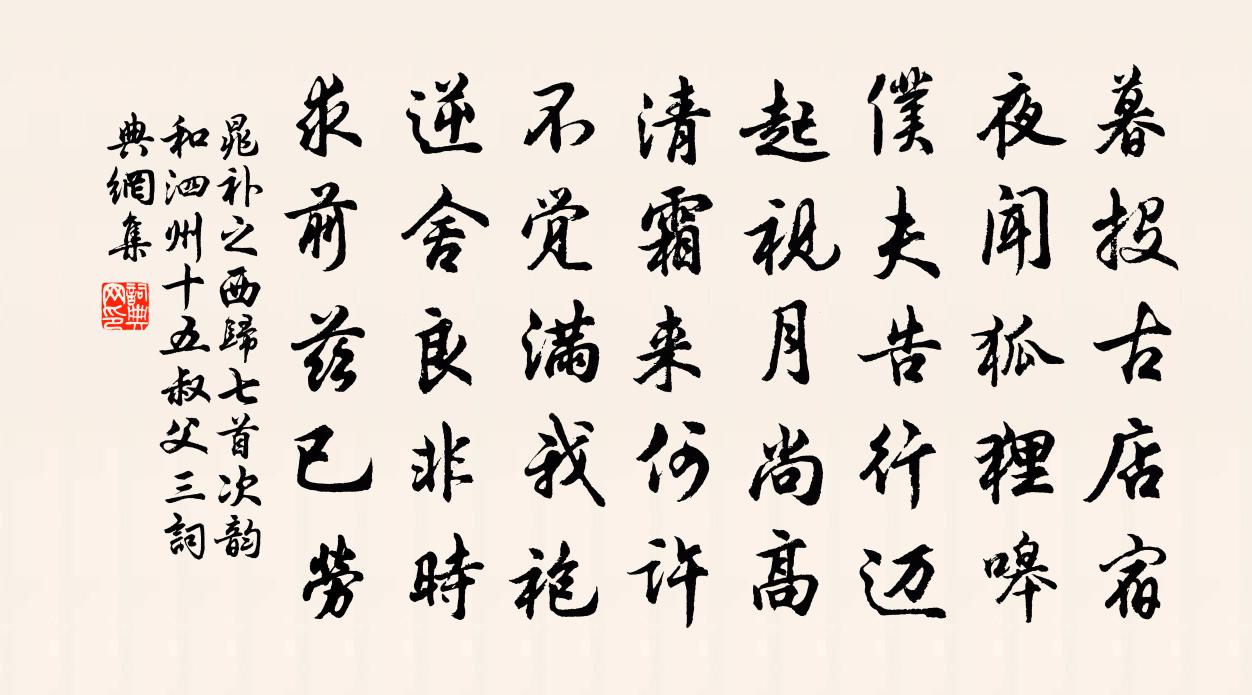 暮投古店宿
夜闻狐狸嗥
僕夫告行迈
起視月尚高
清霜来何許
不觉满我袍
逆舍良非時
求前兹已勞
晁补之西歸七首次韵
和泗州十五叔父三詞
典網集
詞典网印